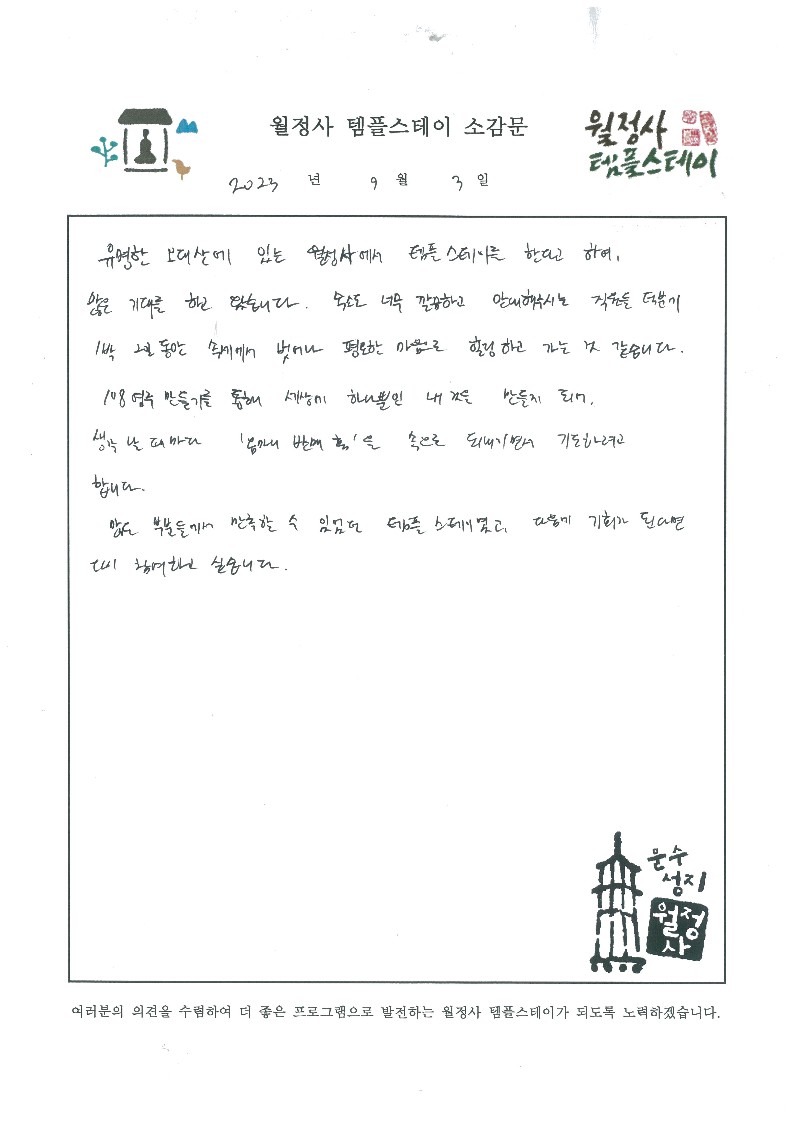 월정사 템플스테이 소감문
월정사
템플스테이
2023 년 9 월 3 일
유명한 오대산에 있는 월정사에서 템플스테이를 한다고 하여,
많은 기대를 하고 왔습니다. 숙소도 너무 깔끔하고 안내해주시는 직원들 덕분에
1박 2일 동안 속세에서 벗어나 평온한 마음으로 힐링하고 가는 것 같습니다.
108 염주 만들기를 통해 세상에 하나뿐인 내 것을 만들게 되어,
생각 날 때마다 '옴마니 반메 훔'을 속으로 되새기면서 기도하려고
합니다.
많은 부분들에서 만족할 수 있었던 템플스테이였고, 다음에 기회가 된다면
다시 참여하고 싶습니다.
문수
성지
월정
사
여러분의 의견을 수렴하여 더 좋은 프로그램으로 발전하는 월정사 템플스테이가 되도록 노력하겠습니다.